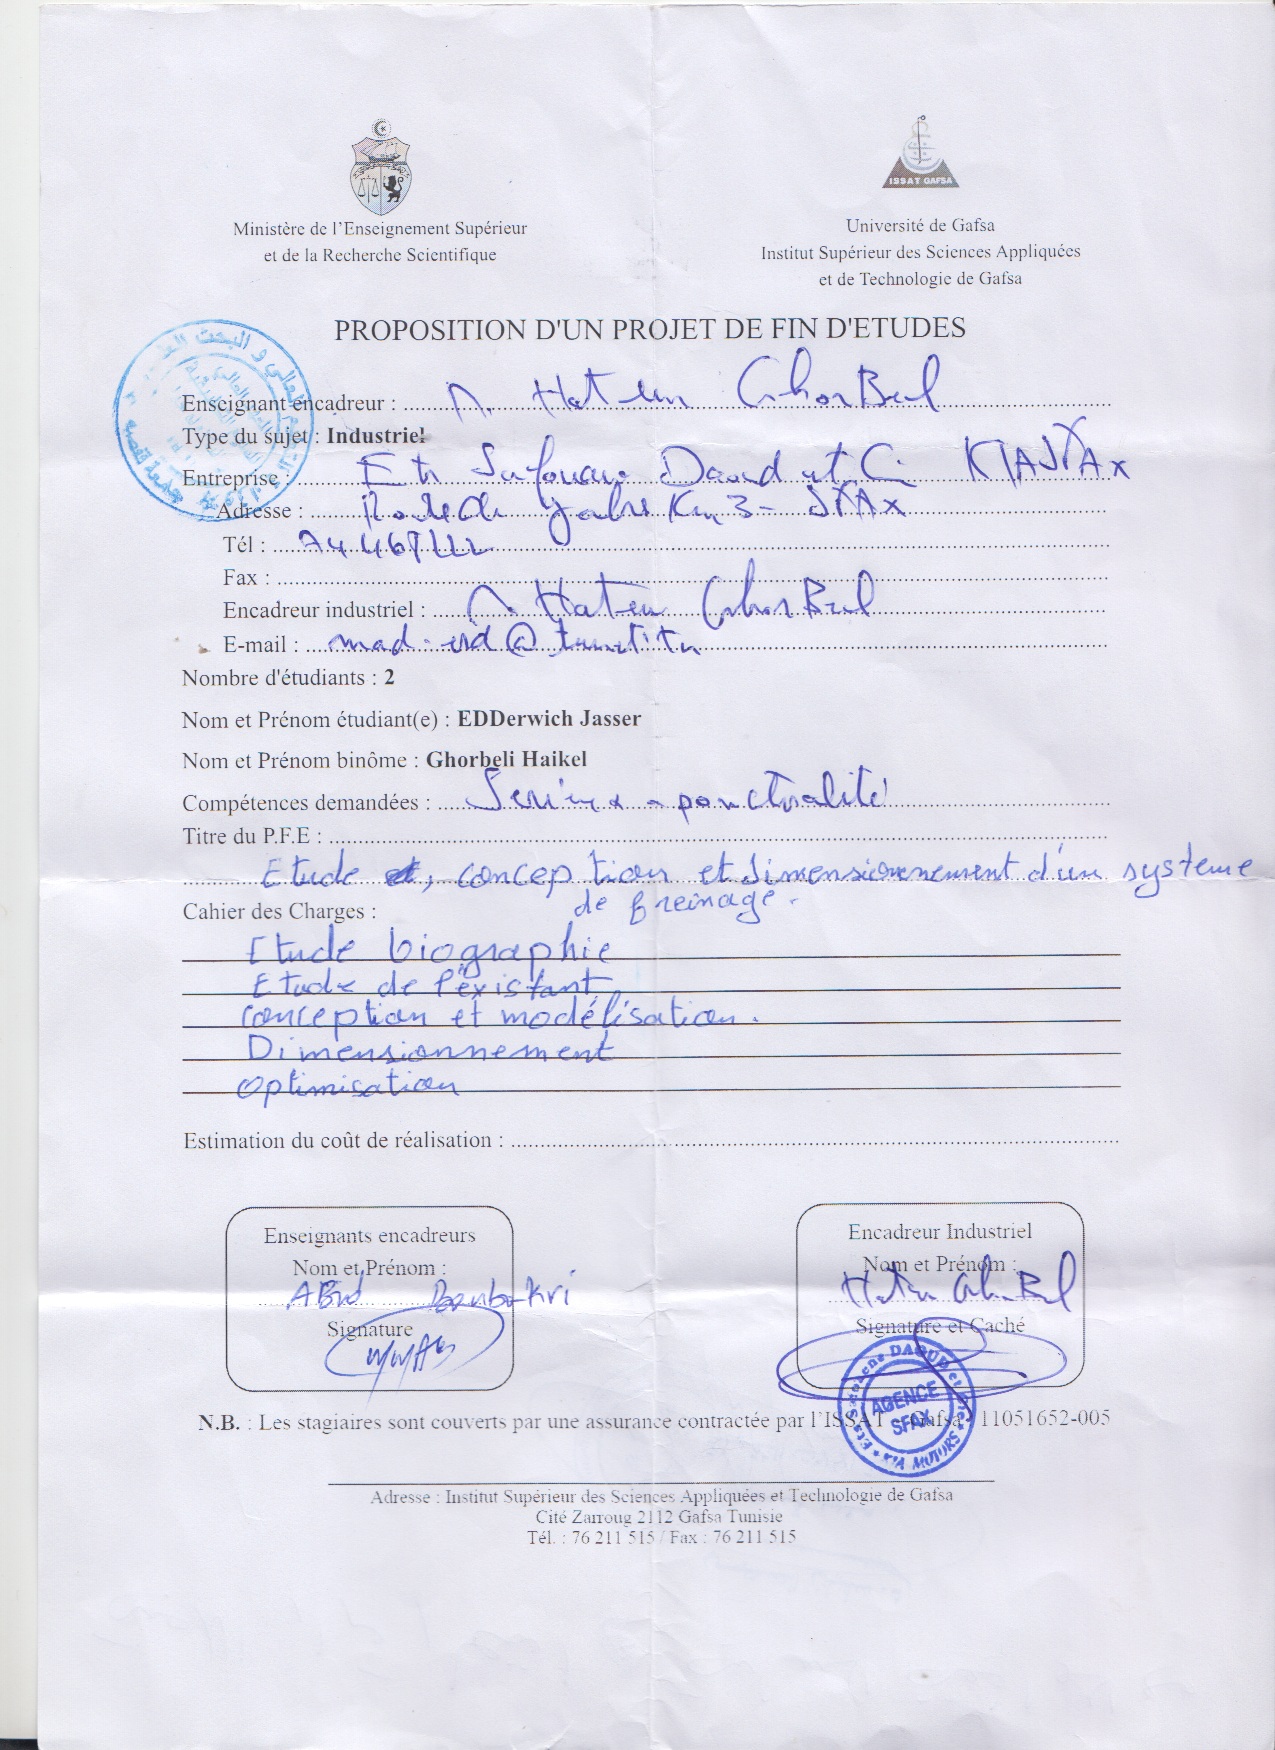 Ministère de l'Enseignement Supérieur
et de la Recherche Scientifique
ISSAT GAFSA
Université de Gafsa
Institut Supérieur des Sciences Appliquées
et de Technologie de Gafsa
PROPOSITION D'UN PROJET DE FIN D'ETUDES
Enseignant encadreur : Hatem Ghorbel
Type du sujet : Industriel
Entreprise : Daoud et KIA SFAX
Adresse : Km 3 - SFAX
Tél :
Fax :
Encadreur industriel : Hatem Ghorbel
E-mail :
Nombre d'étudiants : 2
Nom et Prénom étudiant(e) : EDDerwich Jasser
Nom et Prénom binôme : Ghorbeli Haikel
Compétences demandées : Sérieux - ponctualité
Titre du P.F.E :
Etude , conception et dimensionnement d'un système
de freinage.
Cahier des Charges :
Etude biographie
Etude de l'éxistant
conception et modélisation.
Dimensionnement
optimisation
Estimation du coût de réalisation :
Enseignants encadreurs
Nom et Prénom :
Signature
Encadreur Industriel
Nom et Prénom :
Hatem Ghorbel
Signature et Caché
DAOUD et
AGENCE
SFAX
KIA MOTORS
N.B. : Les stagiaires sont couverts par une assurance contractée par l'ISSAT Gafsa 11051652-005
Adresse : Institut Supérieur des Sciences Appliquées et Technologie de Gafsa
Cité Zarroug 2112 Gafsa Tunisie
Tél. : 76 211 515 / Fax : 76 211 515